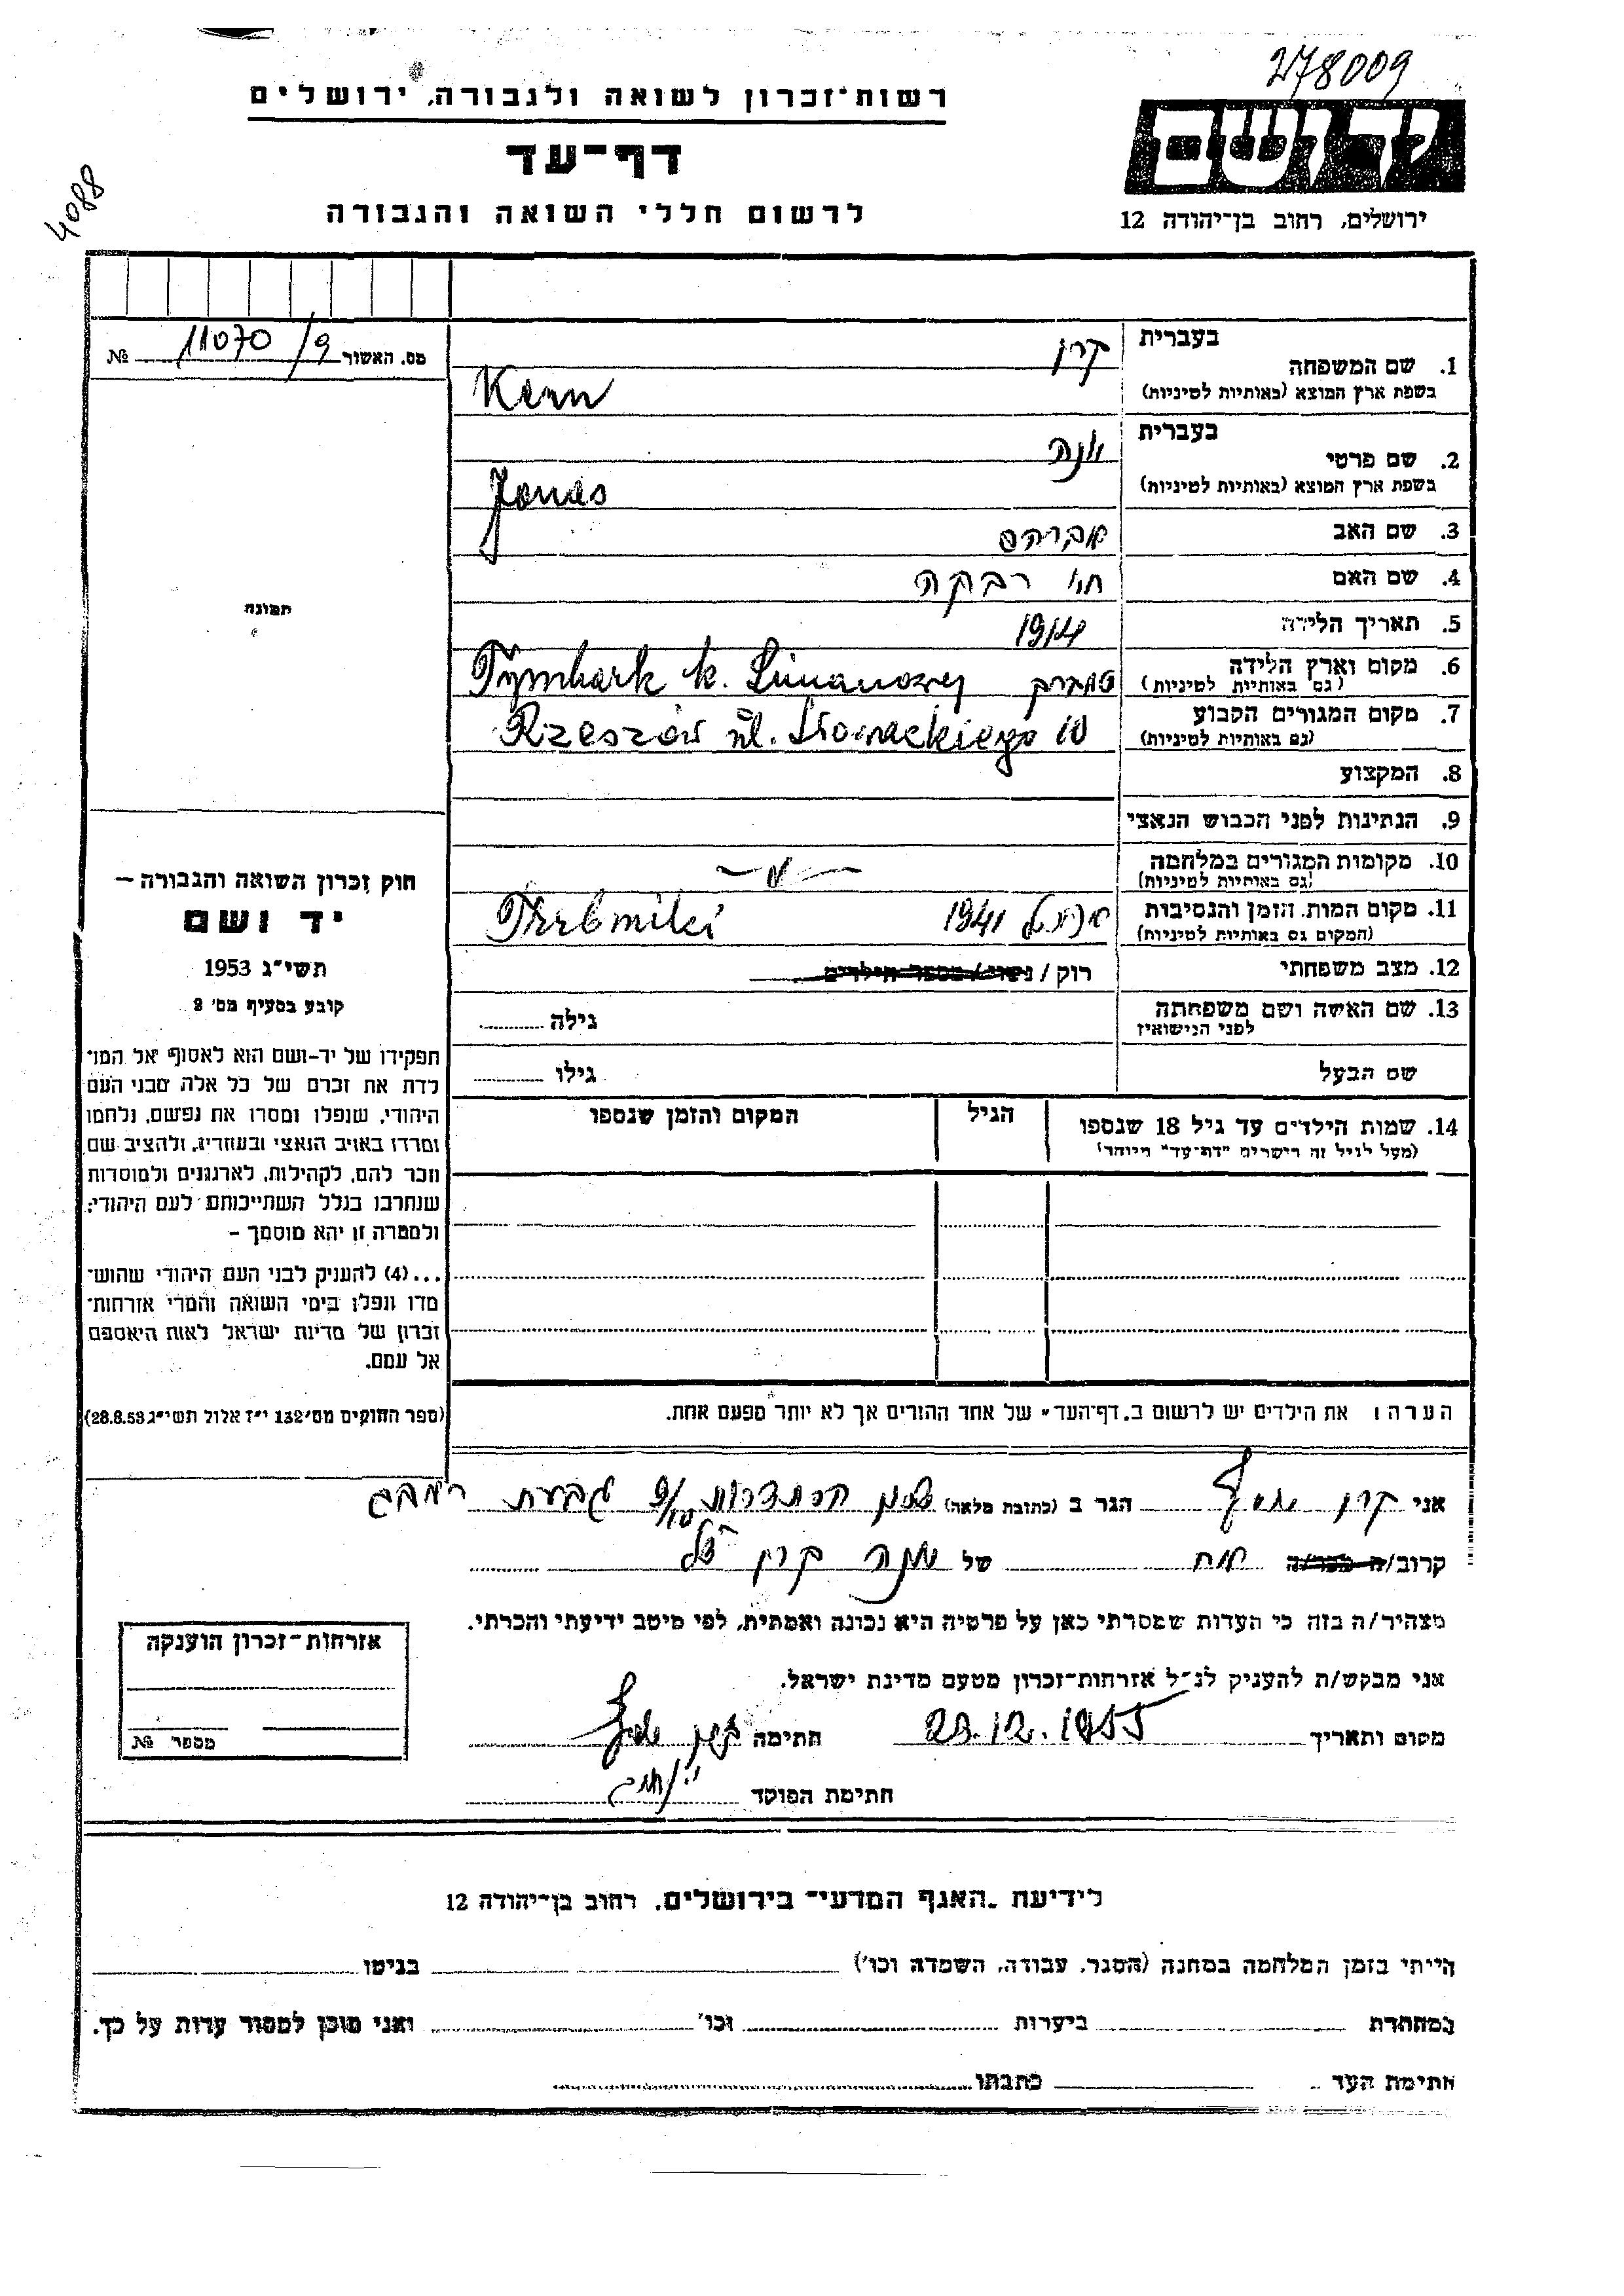 278009
רשות־זכרון לשואה ולגבורה, ירושלים
דף־עד
לרשום חללי השואה והגבורה
ידושם
ירושלים, רחוב בן־יהודה 12
4088
מס. האשור 11070/9 №
בעברית
1. שם המשפחה קרן
בשפת ארץ המוצא (באותיות לטיניות) Kern
בעברית
2. שם פרטי יונה
בשפת ארץ המוצא (באותיות לטיניות) Jonas
3. שם האב אברהם
4. שם האם חי' רבקה
5. תאריך הלידה 1914
6. מקום וארץ הלידה Tymbark k. Limanowej
(גם באותיות לטיניות)
7. מקום המגורים הקבוע Rzeszów ul. Słowackiego 10
(גם באותיות לטיניות)
8. המקצוע
9. הנתינות לפני הכבוש הנאצי
10. מקומות המגורים במלחמה —"—
(גם באותיות לטיניות)
11. מקום המות, הזמן והנסיבות 1941
(המקום גם באותיות לטיניות)
12. מצב משפחתי רוק / נשוי / מספר הילדים
13. שם האשה ושם משפחתה גילה
לפני הנישואין
שם הבעל גילו
14. שמות הילדים עד גיל 18 שנספו
(מעל לגיל זה רישרים "דף־עד" מיוחד)
הגיל
המקום והזמן שנספו
הערה: את הילדים יש לרשום ב„דף־העד" של אחד ההורים אך לא יותר מפעם אחת.
תמונה
חוק זכרון השואה והגבורה –
יד ושם
תשי"ג 1953
קובע בסעיף מס' 2
תפקידו של יד-ושם הוא לאסוף אל המו־
לדת את זכרם של כל אלה מבני העם
היהודי, שנפלו ומסרו את נפשם, נלחמו
ומרדו באויב הנאצי ובעוזריו, ולהציב שם
וזכר להם, לקהילות, לארגונים ולמוסדות
שנחרבו בגלל השתייכותם לעם היהודי;
ולמטרה זו יהא מוסמך –
...(4) להעניק לבני העם היהודי שהוש־
מדו ונפלו בימי השואה והמרי אזרחות־
זכרון של מדינת ישראל לאות היאספם
אל עמם.
(ספר החוקים מס' 132 י"ז אלול תשי"ג 28.8.53)
אני קרן יוסף הגר ב (כתובת מלאה) הסתדרות 9/10 גבעת רמב"ם
קרוב/ה מכר/ה אח של יונה קרן ז"ל
מצהיר/ה בזה כי העדות שמסרתי כאן על פרטיה היא נכונה ואמתית, לפי מיטב ידיעתי והכרתי.
אני מבקש/ת להעניק לנ"ל אזרחות־זכרון מטעם מדינת ישראל.
מקום ותאריך 29.12.1955 חתימה קרן יוסף
חתימת הפוקד
אזרחות־זכרון הוענקה
מספר №
לידיעת „האגף המדעי" בירושלים, רחוב בן־יהודה 12
הייתי בזמן המלחמה במחנה (הסגר, עבודה, השמדה וכו') בגיטו
במחתרת ביערות וכו' ואני מוכן למסור עדות על כך.
חתימת העד כתבתו